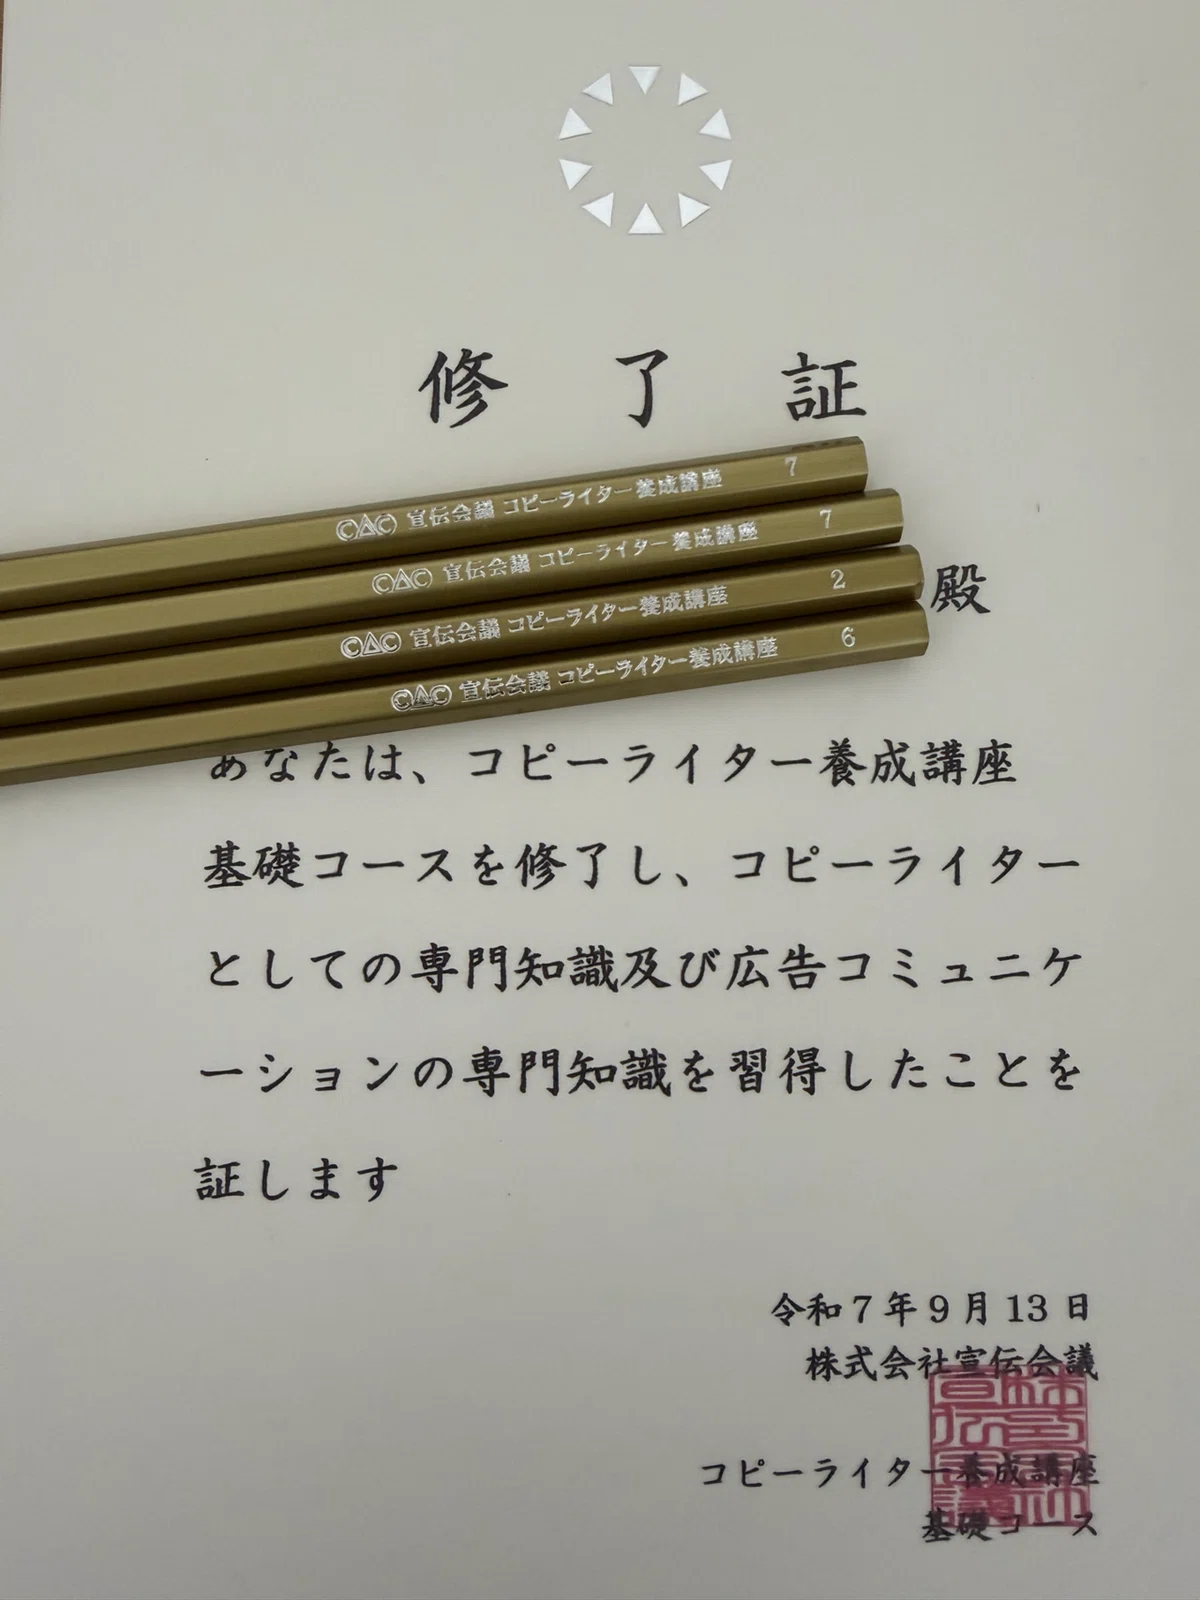 修了証
CAC 宣伝会議 コピーライター養成講座 7
CAC 宣伝会議 コピーライター養成講座 7
CAC 宣伝会議 コピーライター養成講座 2
殿
CAC 宣伝会議 コピーライター養成講座 6
あなたは、コピーライター養成講座
基礎コースを修了し、コピーライター
としての専門知識及び広告コミュニケ
ーションの専門知識を習得したことを
証します
令和7年9月13日
株式会社宣伝会議
コピーライター養成講座
基礎コース